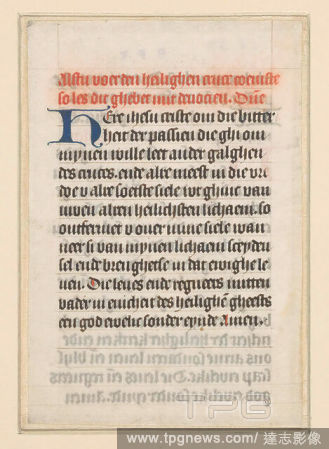 Alstu voer den heilighen cruce coemste
so les dit ghebet mit devocien. Dñe
HEre ihesu criste om die bitter
heit der passien die ghi om
mynen wille leet an der galghen
des cruces. ende alre meest in die vre
doe v alre soetste siele wt ghinc van
uwen alren heilichsten lichaem. so
ontfermet v over mine siele wan
neer si van mynen lichaem sceyden
sel ende brenghetse in dat ewighe le
ven. Die levet ende regneert mitten
vader in enicheit des heilighē gheests
een god ewelic sonder eynde Amen.
TPG
www.tpgnews.com / 達志影像